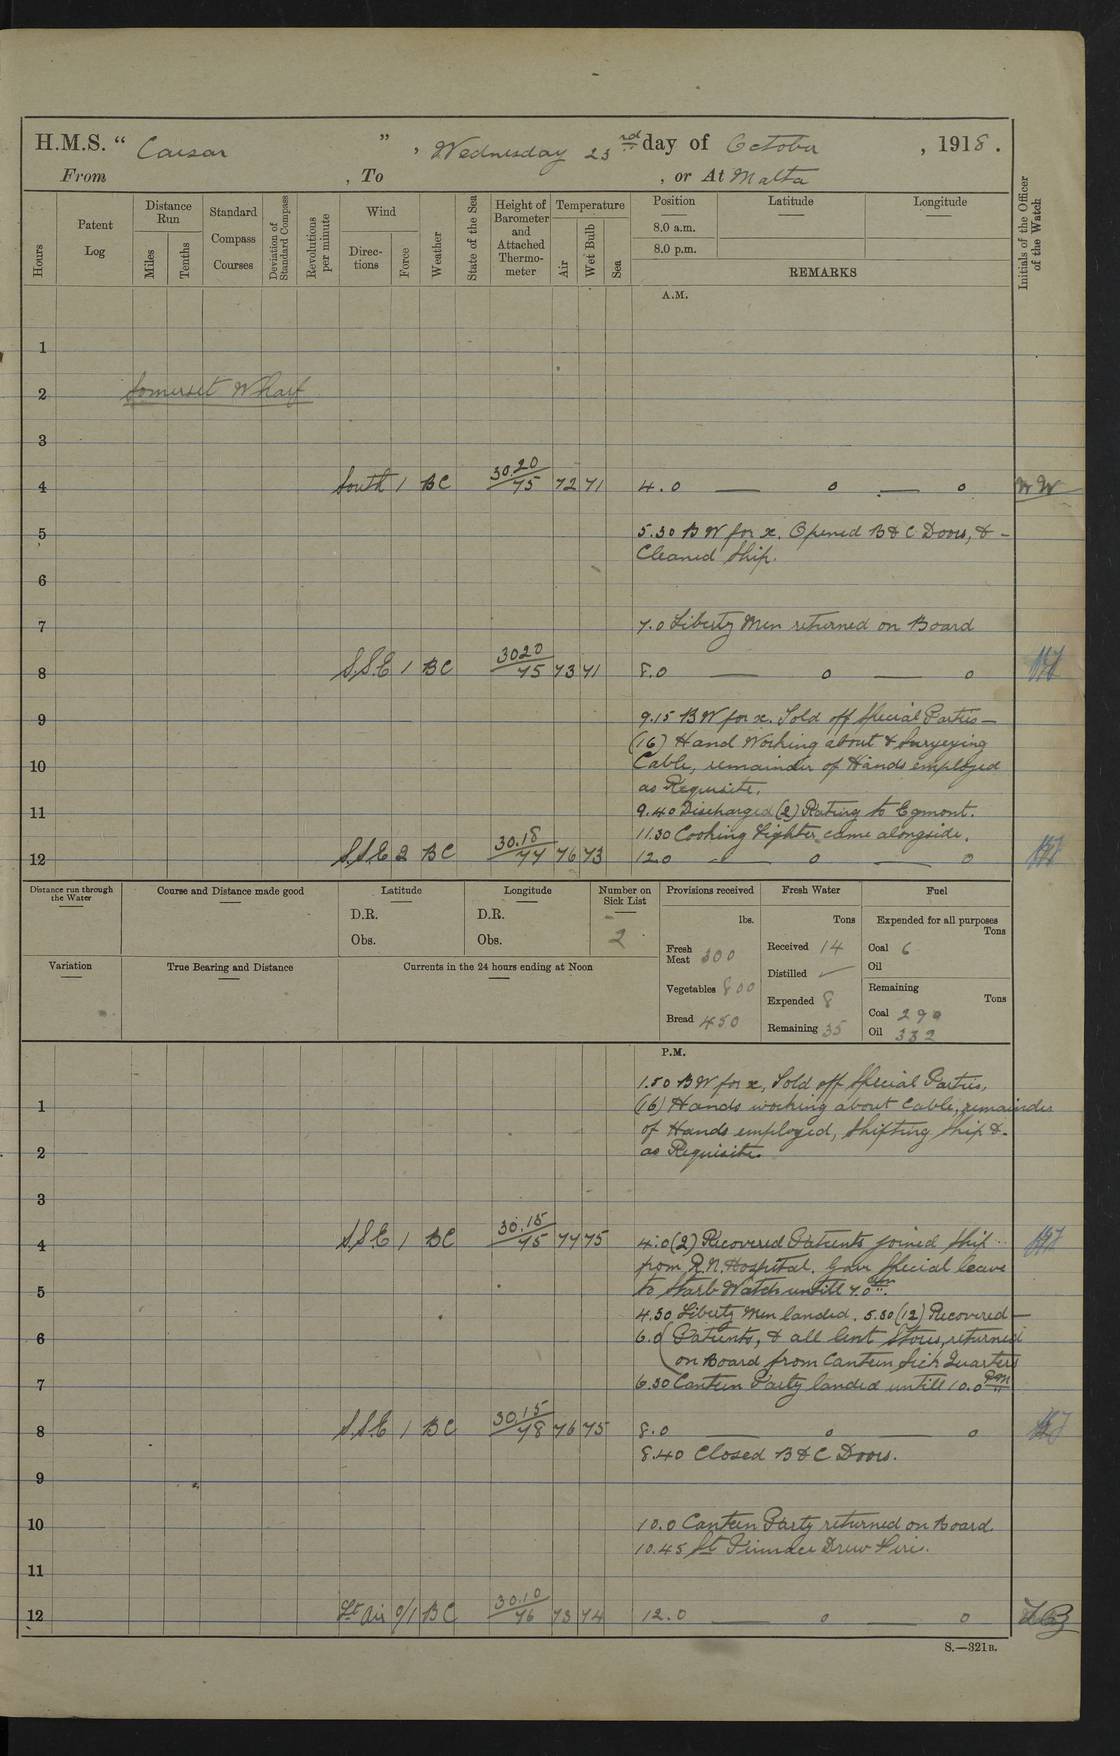 H.M.S. “ Caesar ” , Wednesday 23rd day of October , 1918 .
From , To , or At Malta
Hours
Patent Log
Distance Run
Miles
Tenths
Standard Compass Courses
Deviation of Standard Compass
Revolutions per minute
Wind
Direc-tions
Force
Weather
State of the Sea
Height of Barometer and Attached Thermo-meter
Temperature
Air
Wet Bulb
Sea
Position
8.0 a.m.
8.0 p.m.
Latitude
Longitude
REMARKS
Initials of the Officer of the Watch
A.M.
1
2 Somerset Wharf
3
4 South 1 BC 30.20/75 72 71 4.0 — 0 — 0 WW
5 5.30 BW for x. Opened B & C Doors, & -
Cleaned Ship.
6
7 7.0 Liberty Men returned on Board
8 S.S.E 1 BC 3020/75 73 71 8.0 — 0 — 0
9 9.15 BW for x. Told off Special Parties —
(16) Hand Working about & Surveying
10 Cable, remainder of Hands employed
as Requisite.
11 9.40 Discharged (2) Rating to Egmont.
11.30 Cooking Lighter came alongside.
12 S.S.E 2 BC 30.18/77 76 73 12.0 — 0 — 0
Distance run through the Water
Course and Distance made good
Latitude
D.R.
Obs.
Longitude
D.R.
Obs.
Number on Sick List
2
Provisions received
lbs.
Fresh Meat 300
Vegetables 800
Bread 450
Fresh Water
Tons
Received 14
Distilled
Expended 8
Remaining 35
Fuel
Expended for all purposes
Tons
Coal 6
Oil
Remaining
Tons
Coal 290
Oil 332
Variation
True Bearing and Distance
Currents in the 24 hours ending at Noon
P.M.
1.50 BW for x, Told off Special Parties,
1 (16) Hands working about Cable, remainder
of Hands employed, Shifting Ship &-
2 as Requisite.
3
4 S.S.E 1 BC 30.15/75 77 75 4.0 (2) Recovered Patients joined Ship
from R.N. Hospital. Gave Special leave
5 to Starb Watch untill 7.0 am.
4.30 Liberty Men landed. 5.30 (12) Recovered —
6 6.0 Patients, & all lent Stores, returned
on Board from Canteen Sick Quarters
7 6.30 Canteen Party landed untill 10.0 PM
8 S.S.E 1 BC 30.15/78 76 75 8.0 — 0 — 0
8.40 Closed B & C Doors.
9
10 10.0 Canteen Party returned on Board.
10.45 St Pinnace Drew Fires.
11
12 Lt Air 0/1 BC 30.10/76 73 74 12.0 — 0 — 0
S.—321B.